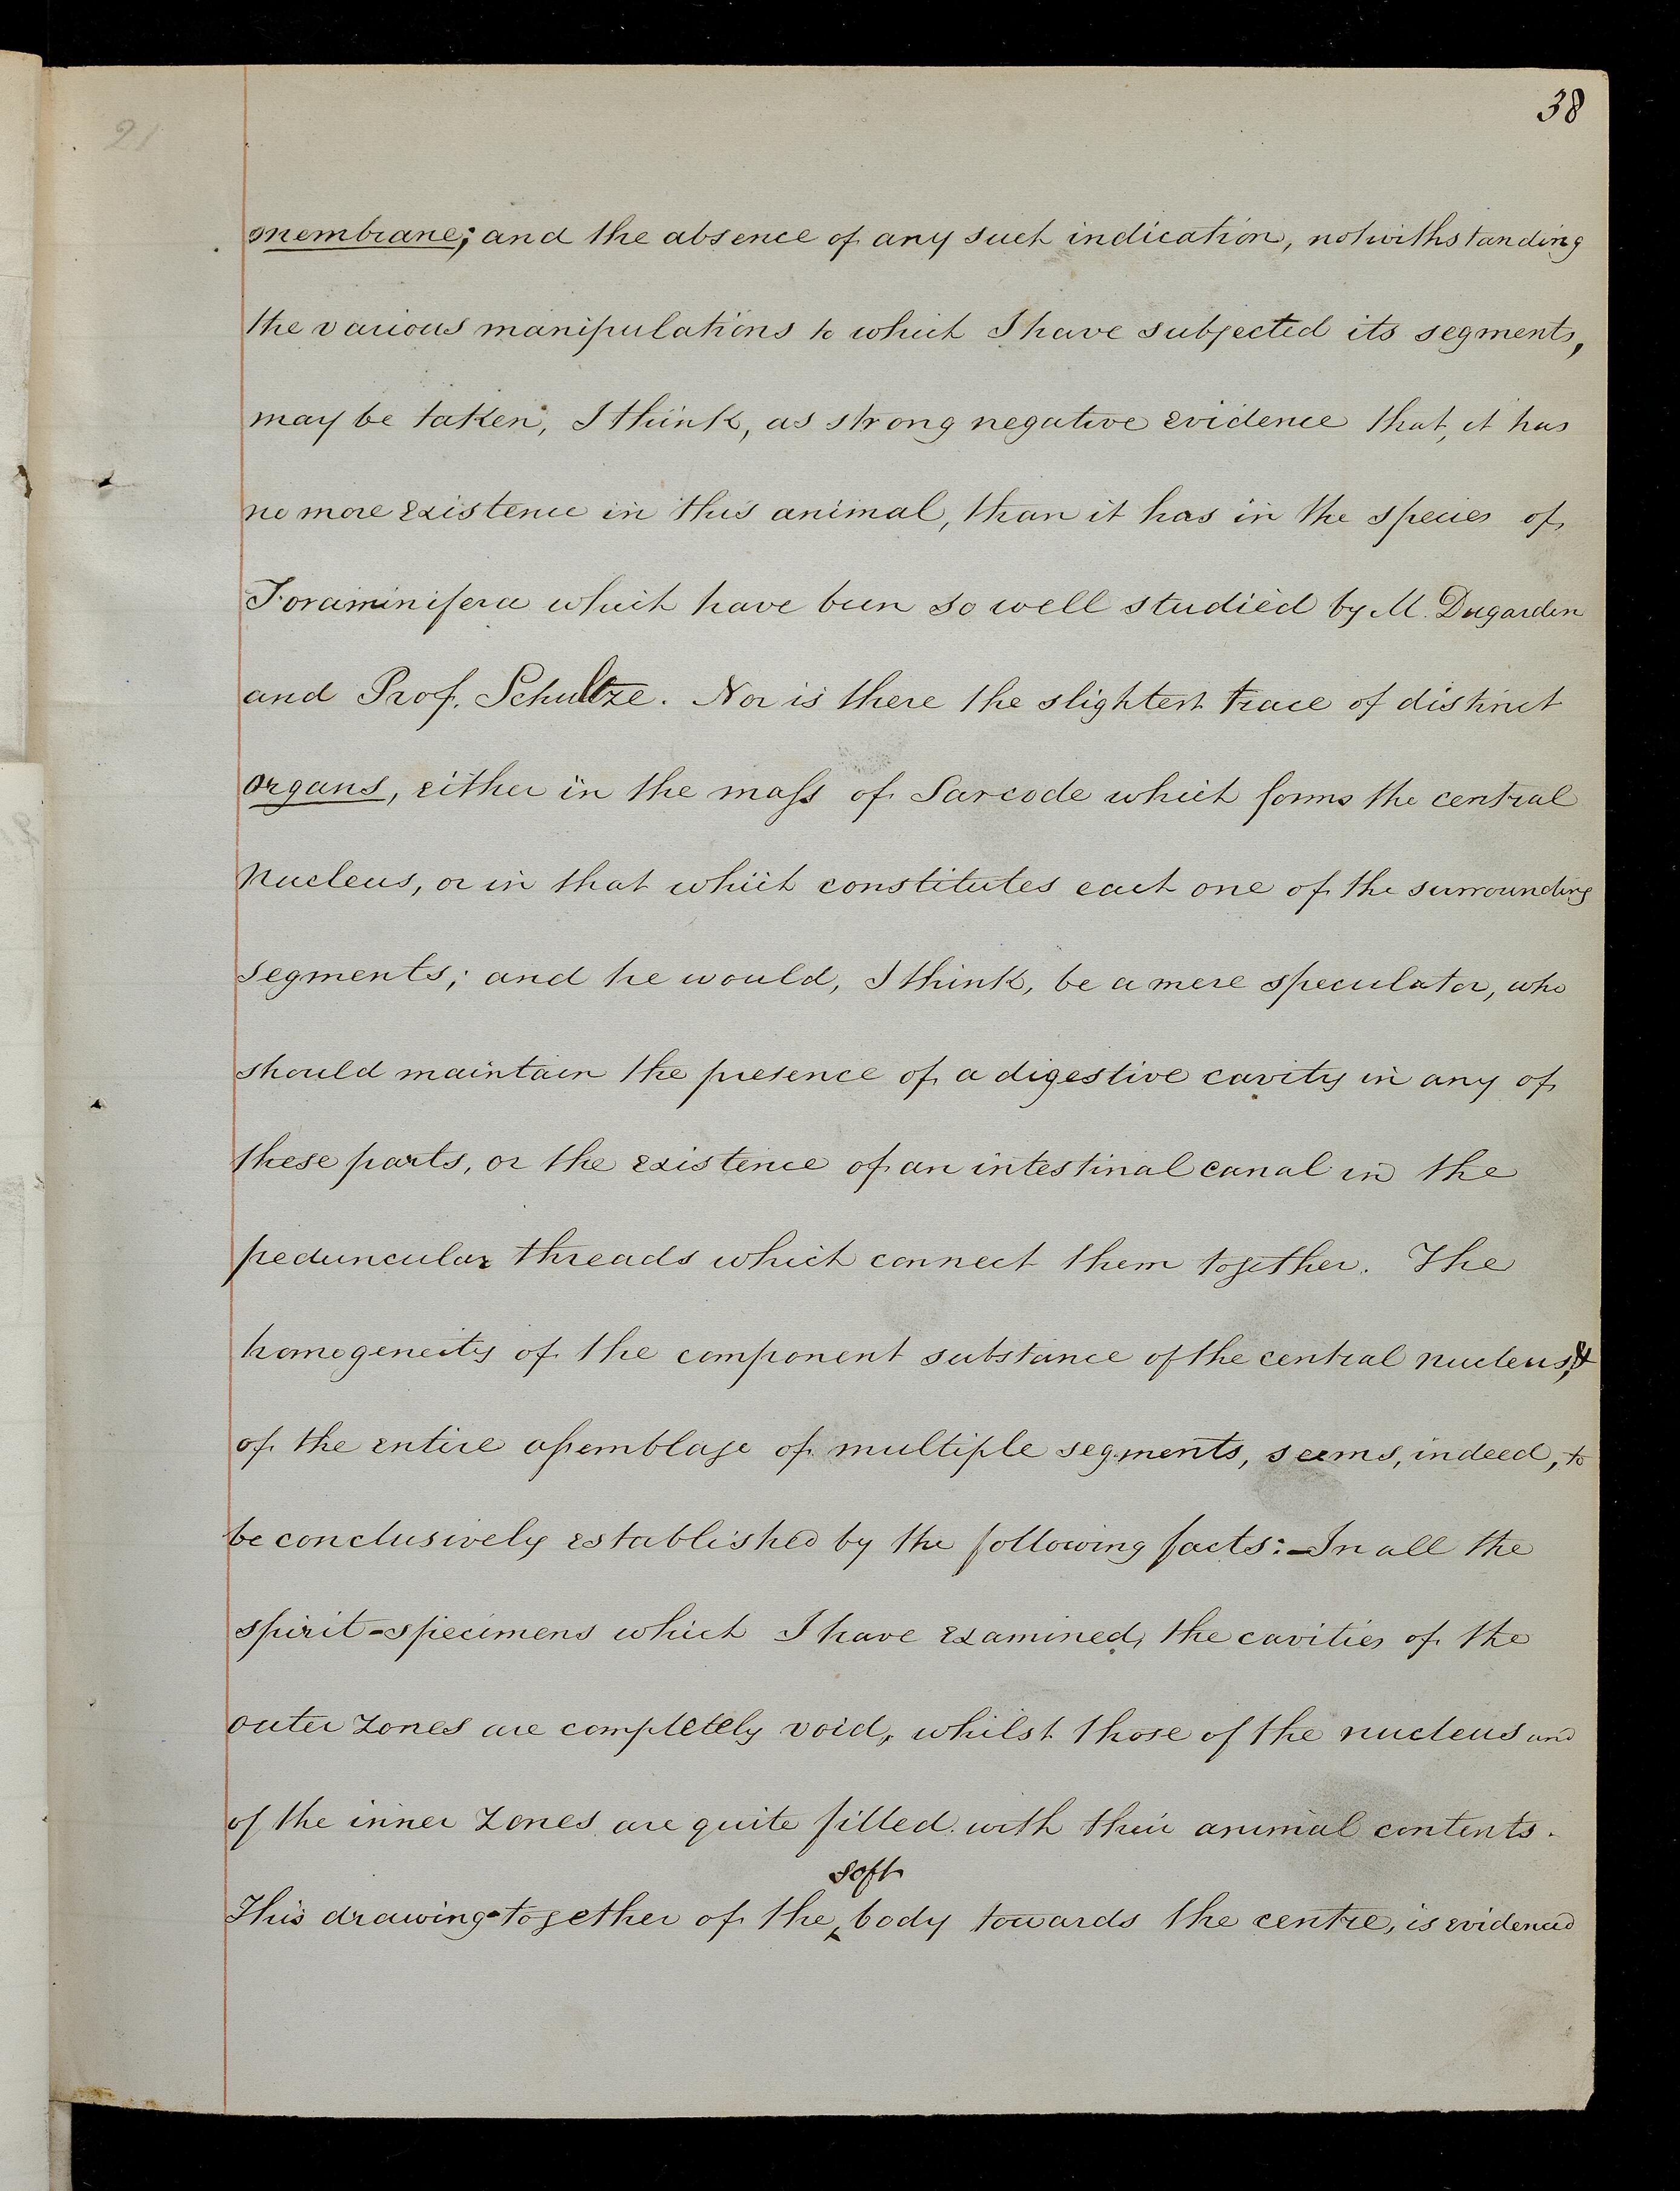 38
21
membrane; and the absence of any such indication, notwithstanding
the various manipulations to which I have subjected its segments,
may be taken, I think, as strong negative evidence that, it has
no more existence in this animal, than it has in the species of
Foraminifera which have been so well studied by M. Dugarden
and Prof. Schultze. Nor is there the slightest trace of distinct
organs, either in the mass of Sarcode which forms the central
nucleus, or in that which constitutes each one of the surrounding
segments; and he would, I think, be a mere speculator, who
should maintain the presence of a digestive cavity in any of
these parts, or the existence of an intestinal canal in the
peduncular threads which connect them together. The
homogeneity of the component substance of the central nucleus, &
of the entire assemblage of multiple segments, seems, indeed, to
be conclusively established by the following facts:—In all the
spirit-specimens which I have examined, the cavities of the
outer zones are completely void, whilst those of the nucleus and
of the inner zones are quite filled with their animal contents.
This drawing-together of the soft body towards the centre, is evidenced